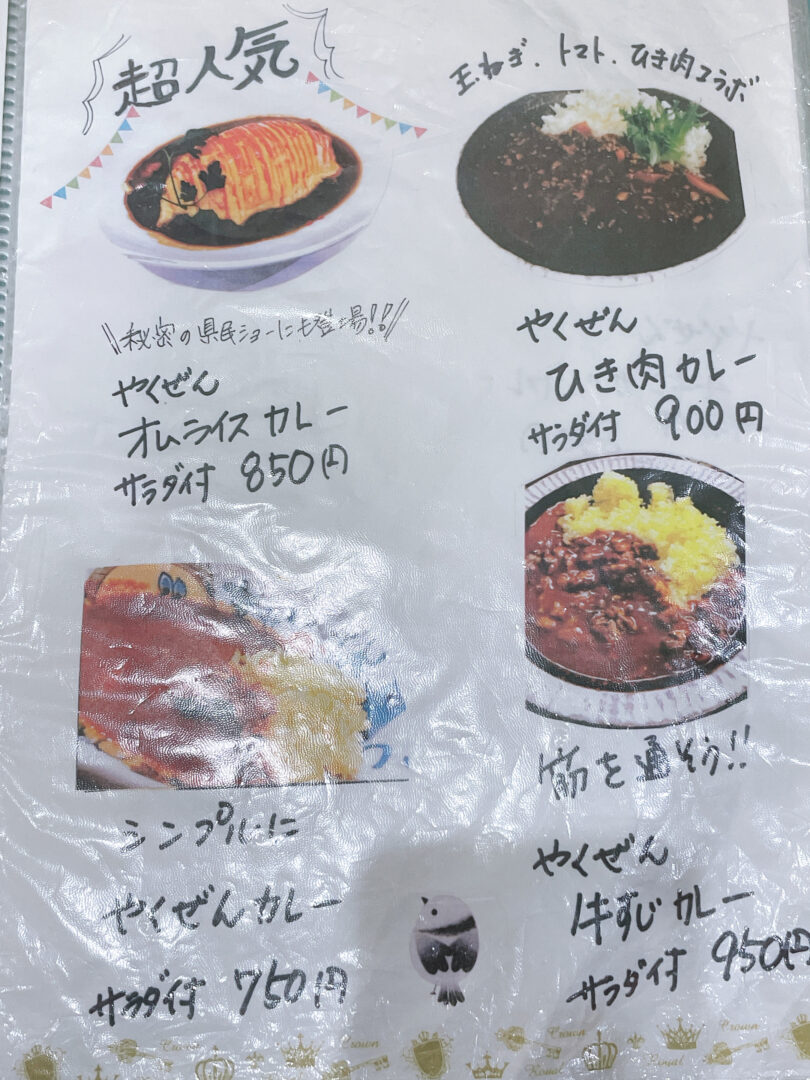 超人気
秘密の県民ショーにも登場!!
やくぜん
オムライスカレー
サラダ付 850円
玉ねぎ、トマト、ひき肉コラボ
やくぜん
ひき肉カレー
サラダ付 900円
シンプルに
やくぜんカレー
サラダ付 750円
筋を通そう!!
やくぜん
牛すじカレー
サラダ付 950円
Crown
Crown
Crown
Royal
Royal